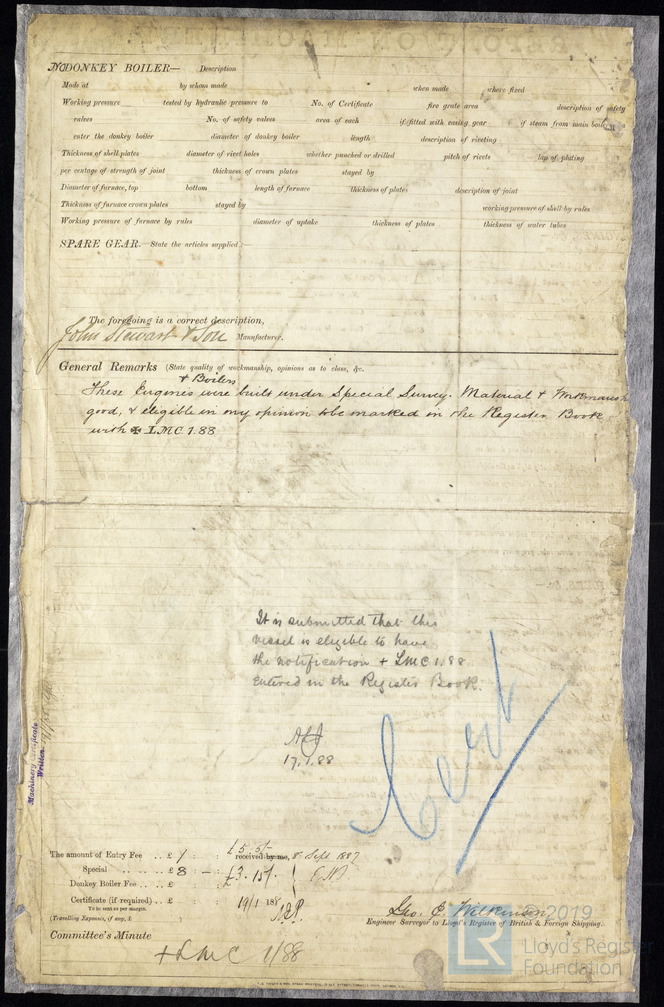 No DONKEY BOILER— Description
Made at by whom made when made where fixed
Working pressure tested by hydraulic pressure to No. of Certificate fire grate area description of safety
valves No. of safety valves area of each if fitted with easing gear if steam from main boilers
enter the donkey boiler diameter of donkey boiler length description of riveting
Thickness of shell plates diameter of rivet holes whether punched or drilled pitch of rivets lap of plating
per centage of strength of joint thickness of crown plates stayed by
Diameter of furnace, top bottom length of furnace thickness of plates description of joint
Thickness of furnace crown plates stayed by working pressure of shell by rules
Working pressure of furnace by rules diameter of uptake thickness of plates thickness of water tubes
SPARE GEAR.—State the articles supplied:—
The foregoing is a correct description,
John Stewart & Son Manufacturer.
General Remarks (State quality of workmanship, opinions as to class, &c.
+ Boilers
These Engines were built under Special Survey. Material & Workmansh
good, & eligible in my opinion to be marked in the Register Book
with ✠ LMC 1.88
It is submitted that this
vessel is eligible to have
the notification + LMC 1.88
entered in the Register Book.
17.1.88
Cert
Machinery Certificate
Written
The amount of Entry Fee .. £ 1 : : £5.5/- received by me, 8 Sept 1887
Special .. £ 8 : — : £3.15/-
Donkey Boiler Fee .. £ : :
Certificate (if required) .. £ : : 19/1 188
To be sent as per margin.
(Travelling Expenses, if any, £ )
Geo. E. Wilkinson
Engineer Surveyor to Lloyd's Register of British & Foreign Shipping.
Committee's Minute
+ LMC 1/88
© 2019
LR
Lloyd's Register
Foundation